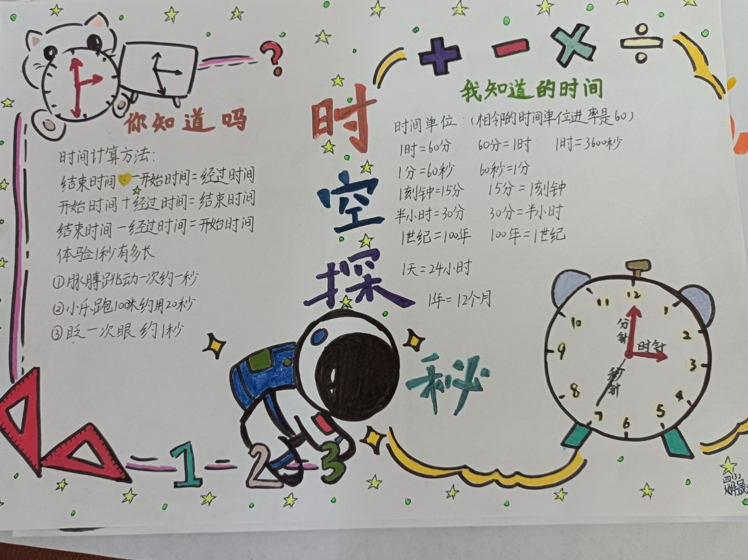 你知道吗
时间计算方法:
结束时间-开始时间=经过时间
开始时间+经过时间=结束时间
结束时间-经过时间=开始时间
体验1秒有多长
①脉膊跳动一次约一秒
②小乐跑100米约用20秒
③眨一次眼约1秒
时
空
探
秘
?
+ - × ÷
我知道的时间
时间单位:(相邻的时间单位进率是60)
1时=60分 60分=1时 1时=3600秒
1分=60秒 60秒=1分
1刻钟=15分 15分=1刻钟
半小时=30分 30分=半小时
1世纪=100年 100年=1世纪
1天=24小时
1年=12个月
12
11
1
10
2
9
3
8
4
7
5
6
分针
时针
秒针
1 2 3